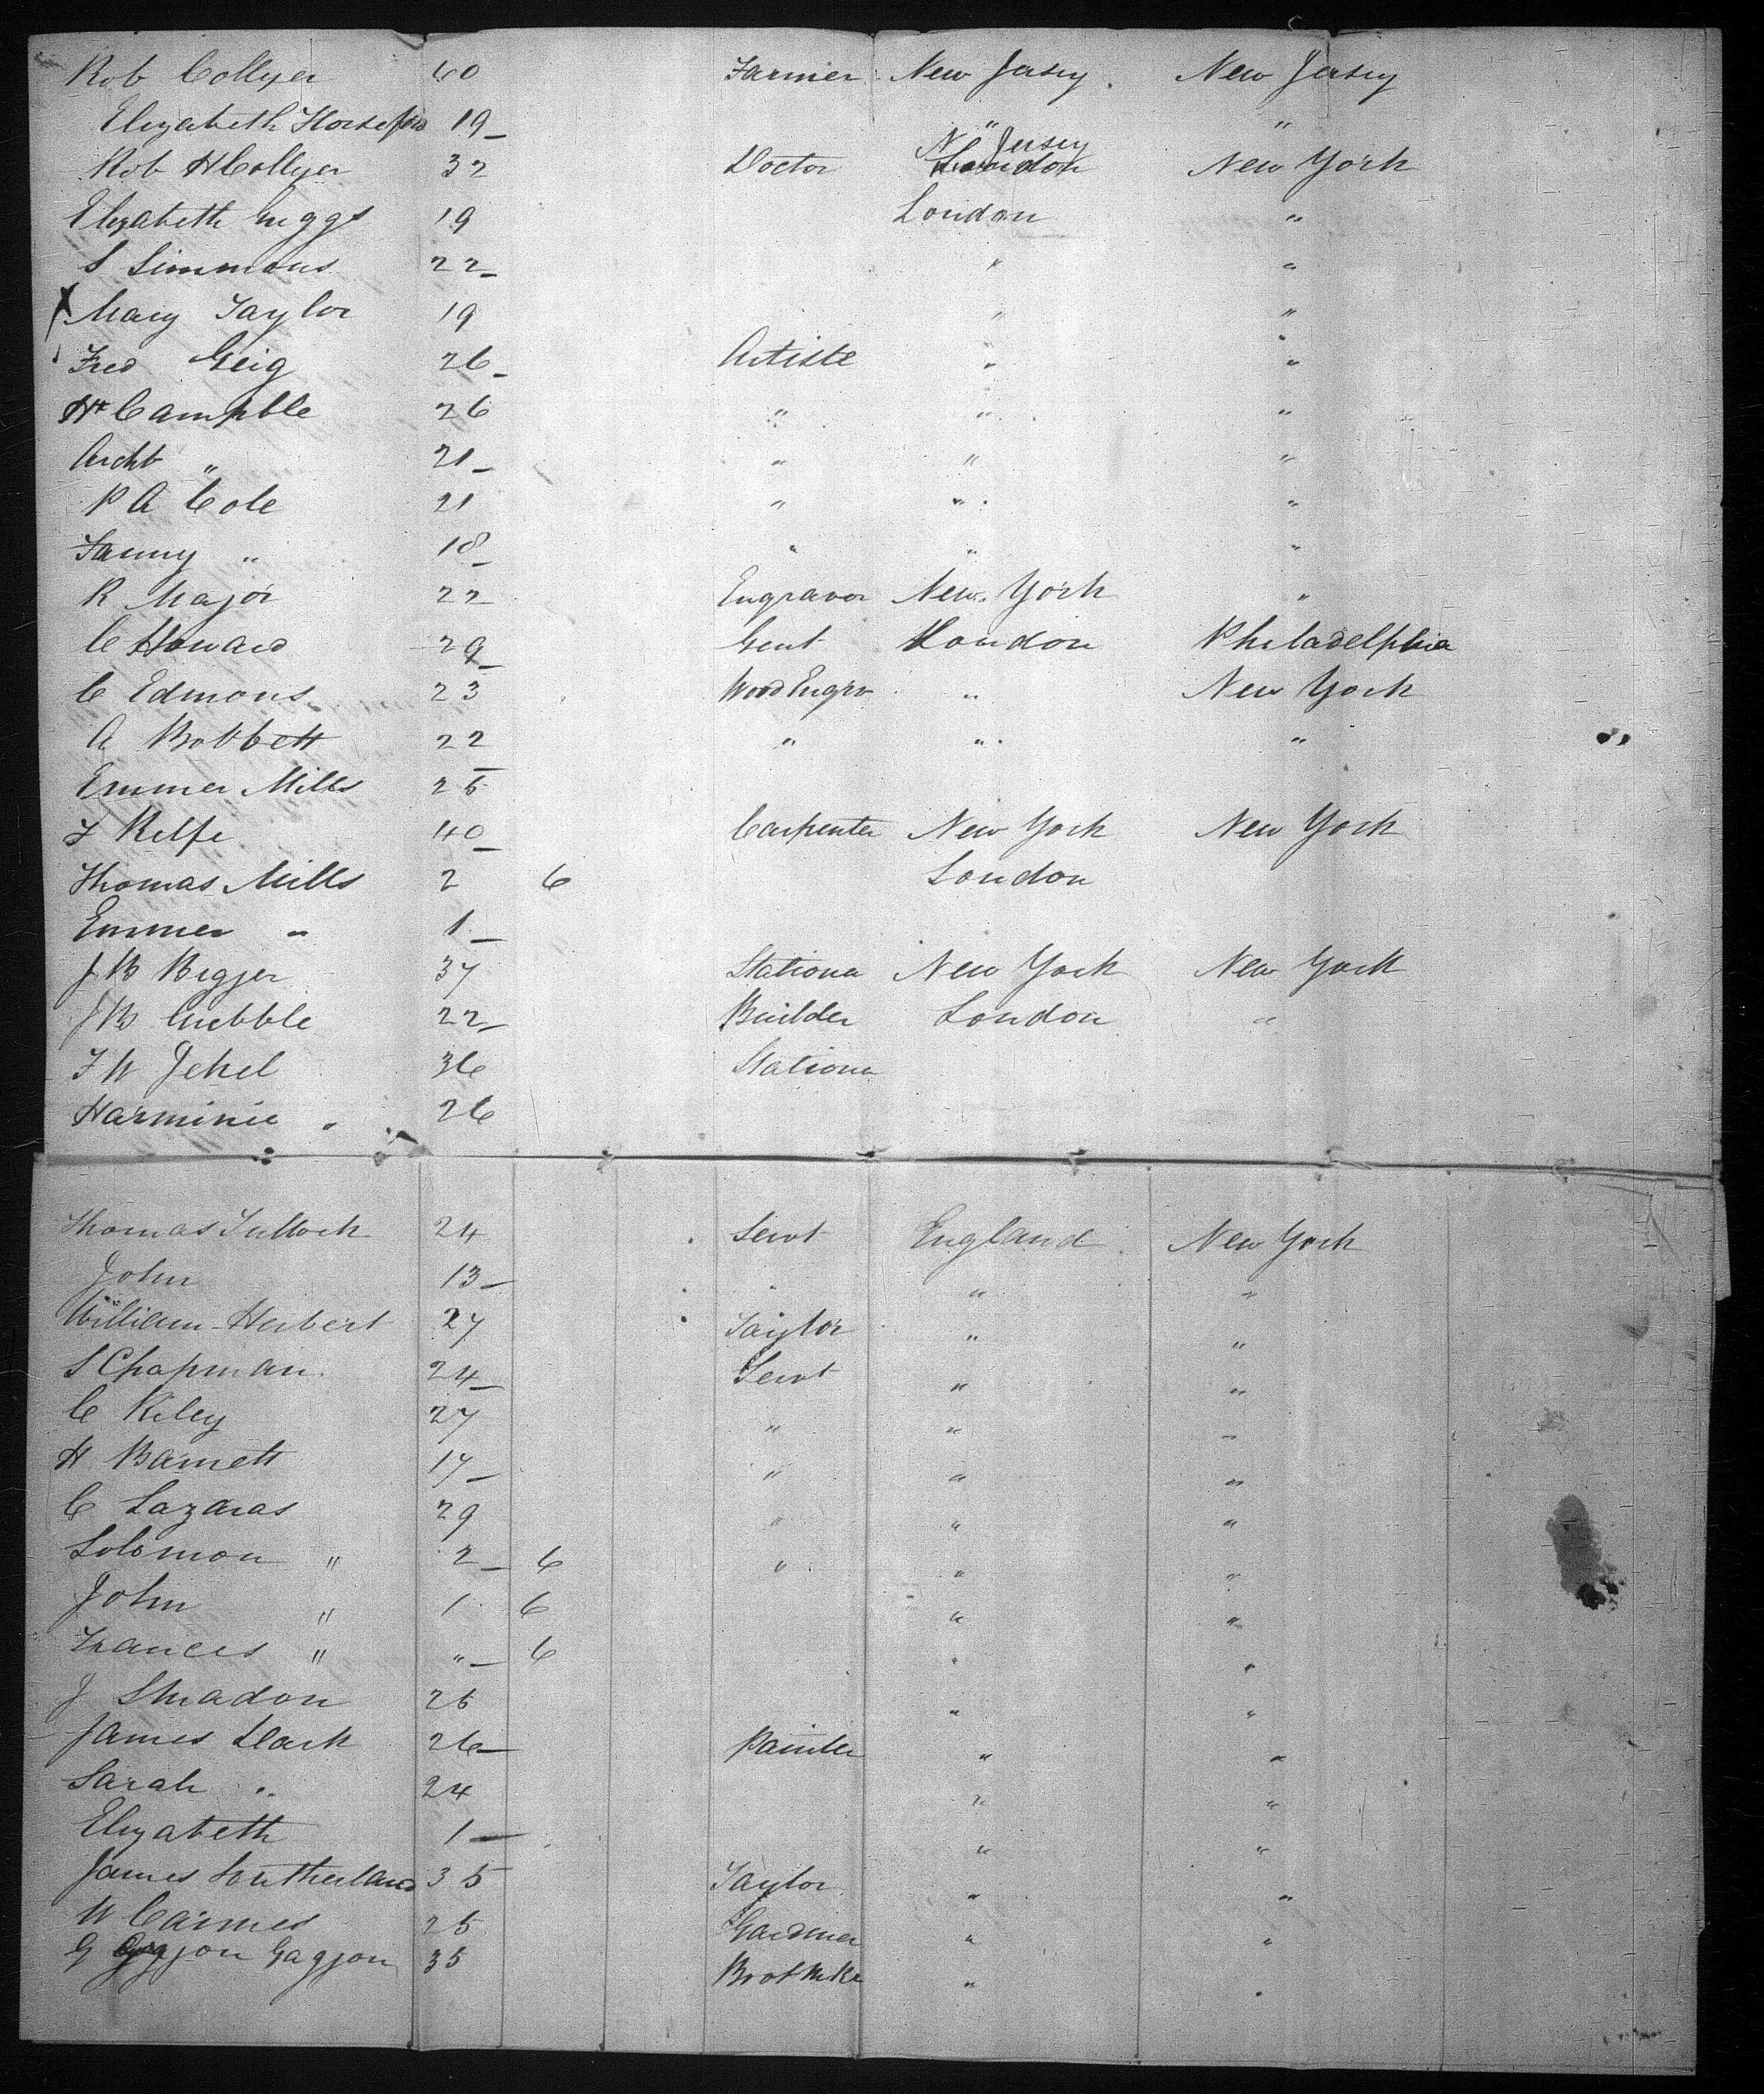 Rob Collyer 60 Farmer New Jersey New Jersey
Elizabeth Horseford 19 " "
Rob H Collyer 32 Doctor N Jersey London New York
Elizabeth 19 London "
S Simmons 22 " "
X Mary Taylor 19 " "
Fred Geig 26 Artiste " "
H Campble 26 " " "
Archt " 21 " " "
P A Cole 21 " " "
Fanny " 18 " " "
R Major 22 Engraver New York "
C Howard 29 Gent London Philadelphia
C Edmons 23 Wood Engrv " New York
A Bobbett 22 " " "
Emmer Mills 25
F Relfe 40 Carpenter New York New York
Thomas Mills 2 6 London
Emmer " 1
J B Bigger 37 Stationer New York New York
J B 22 Builder London "
F W Jekel 36 Stationer
Harminie " 26
Thomas Tullock 24 Servt England New York
John 13 " " "
William Herbert 27 Taylor " "
S Chapman 24 Servt " "
C Riley 27 " " "
H Barnett 17 " " "
C Lazaras 29 " " "
Solomon " 2 6 " " "
John " 1 6 " "
Frances " " 6 " "
J Sheadon 25 " "
James Clark 26 Painter " "
Sarah " 24 " "
Elizabeth 1 " "
James Sutherland 35 Taylor " "
W Cairnes 25 Gardner " "
G Gagjon 35 Boot Mkr " "